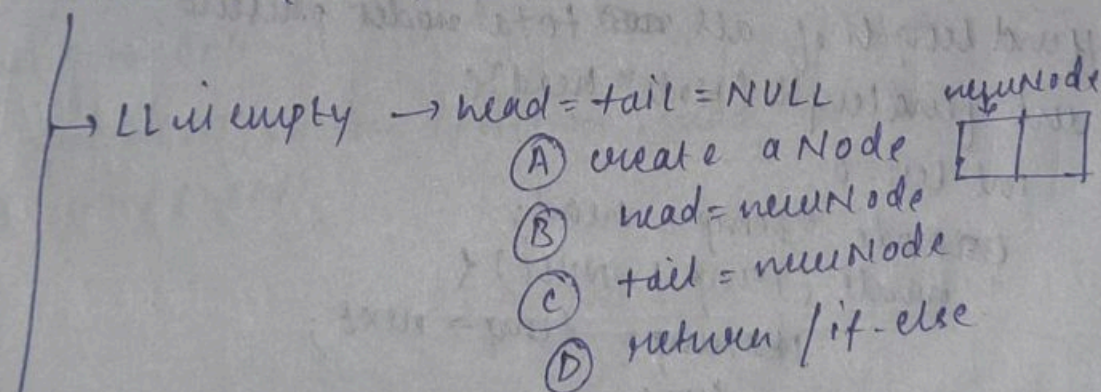 → LL is empty → head = tail = NULL newNode
Ⓐ create a Node
Ⓑ head = newNode
Ⓒ tail = newNode
Ⓓ return / if-else